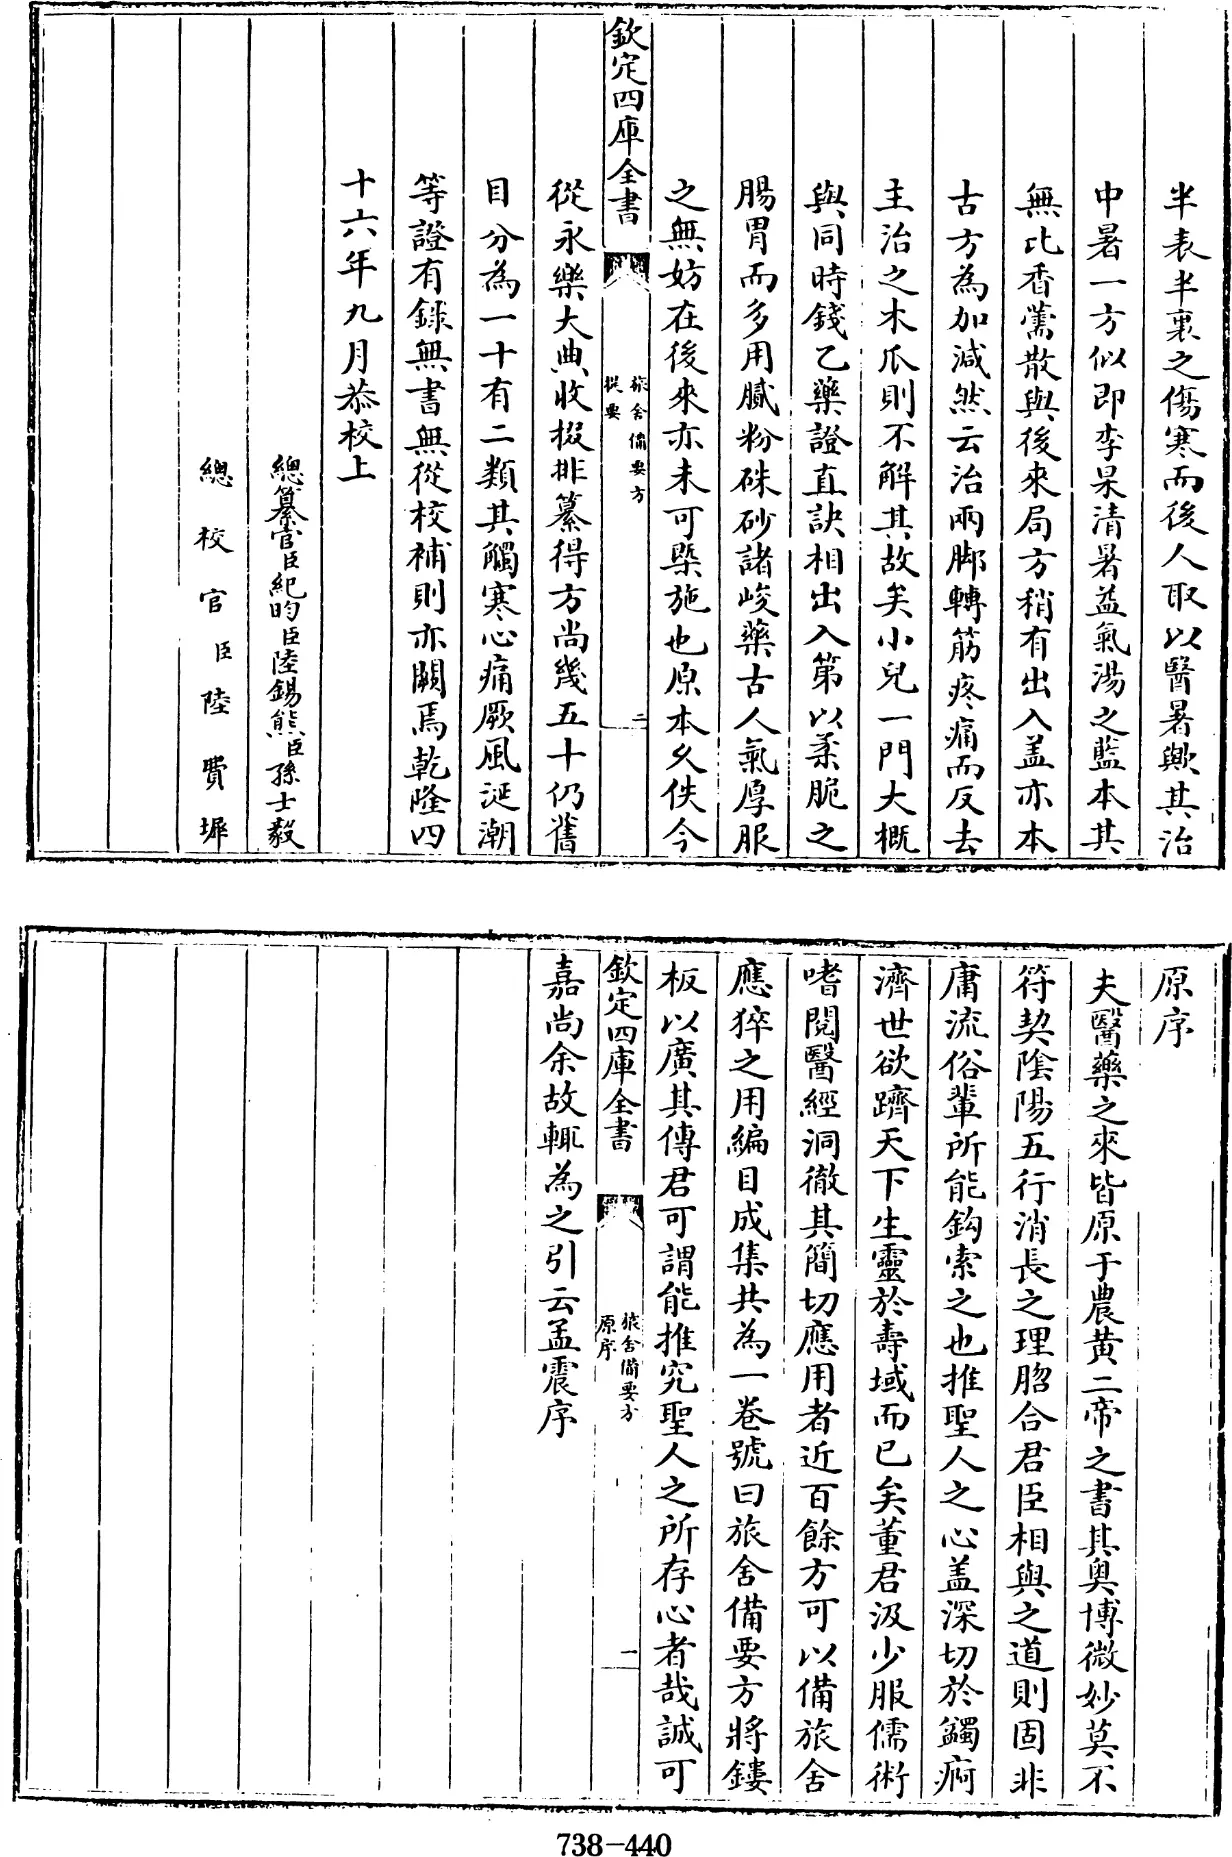 半表半裏之傷寒而後人取以醫暑歟其治
中暑一方似即李杲清暑益氣湯之藍本其
無比香薷散與後來局方稍有出入盖亦本
古方為加減然云治兩脚轉筋疼痛而反去
主治之木瓜則不解其故矣小兒一門大概
與同時錢乙藥證直訣相出入第以柔脆之
腸胃而多用膩粉硃砂諸峻藥古人氣厚服
之無妨在後來亦未可槩施也原本久佚今
欽定四庫全書
旅舍備要方
提要
二
從永樂大典收掇排纂得方尚幾五十仍舊
目分為一十有二類其觸寒心痛厥風涎潮
等證有錄無書無從校補則亦闕焉乾隆四
十六年九月恭校上
總纂官臣紀昀臣陸錫熊臣孫士毅
總校官臣陸費墀
原序
夫醫藥之來皆原于農黃二帝之書其奧博微妙莫不
符契陰陽五行消長之理脗合君臣相與之道則固非
庸流俗輩所能鈎索之也推聖人之心盖深切於蠲痾
濟世欲躋天下生靈於壽域而已矣董君汲少服儒術
嗜閱醫經洞徹其簡切應用者近百餘方可以備旅舍
應猝之用編目成集共為一卷號曰旅舍備要方將鏤
板以廣其傳君可謂能推究聖人之所存心者哉誠可
欽定四庫全書
旅舍備要方
原序
一
嘉尚余故輒為之引云孟震序
738-440